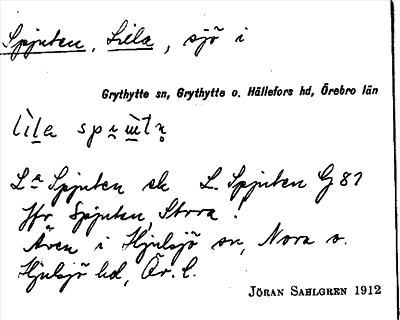 Spjuten, Lilla, sjö i
Grythytte sn, Grythytte o. Hällefors hd, Örebro län
Lª Spjuten ek L. Spjuten G 87
Jfr Spjuten, Stora!
Även i Hjulsjö sn, Nora o.
Hjulsjö hd, Ör. l.
JÖRAN SAHLGREN 1912